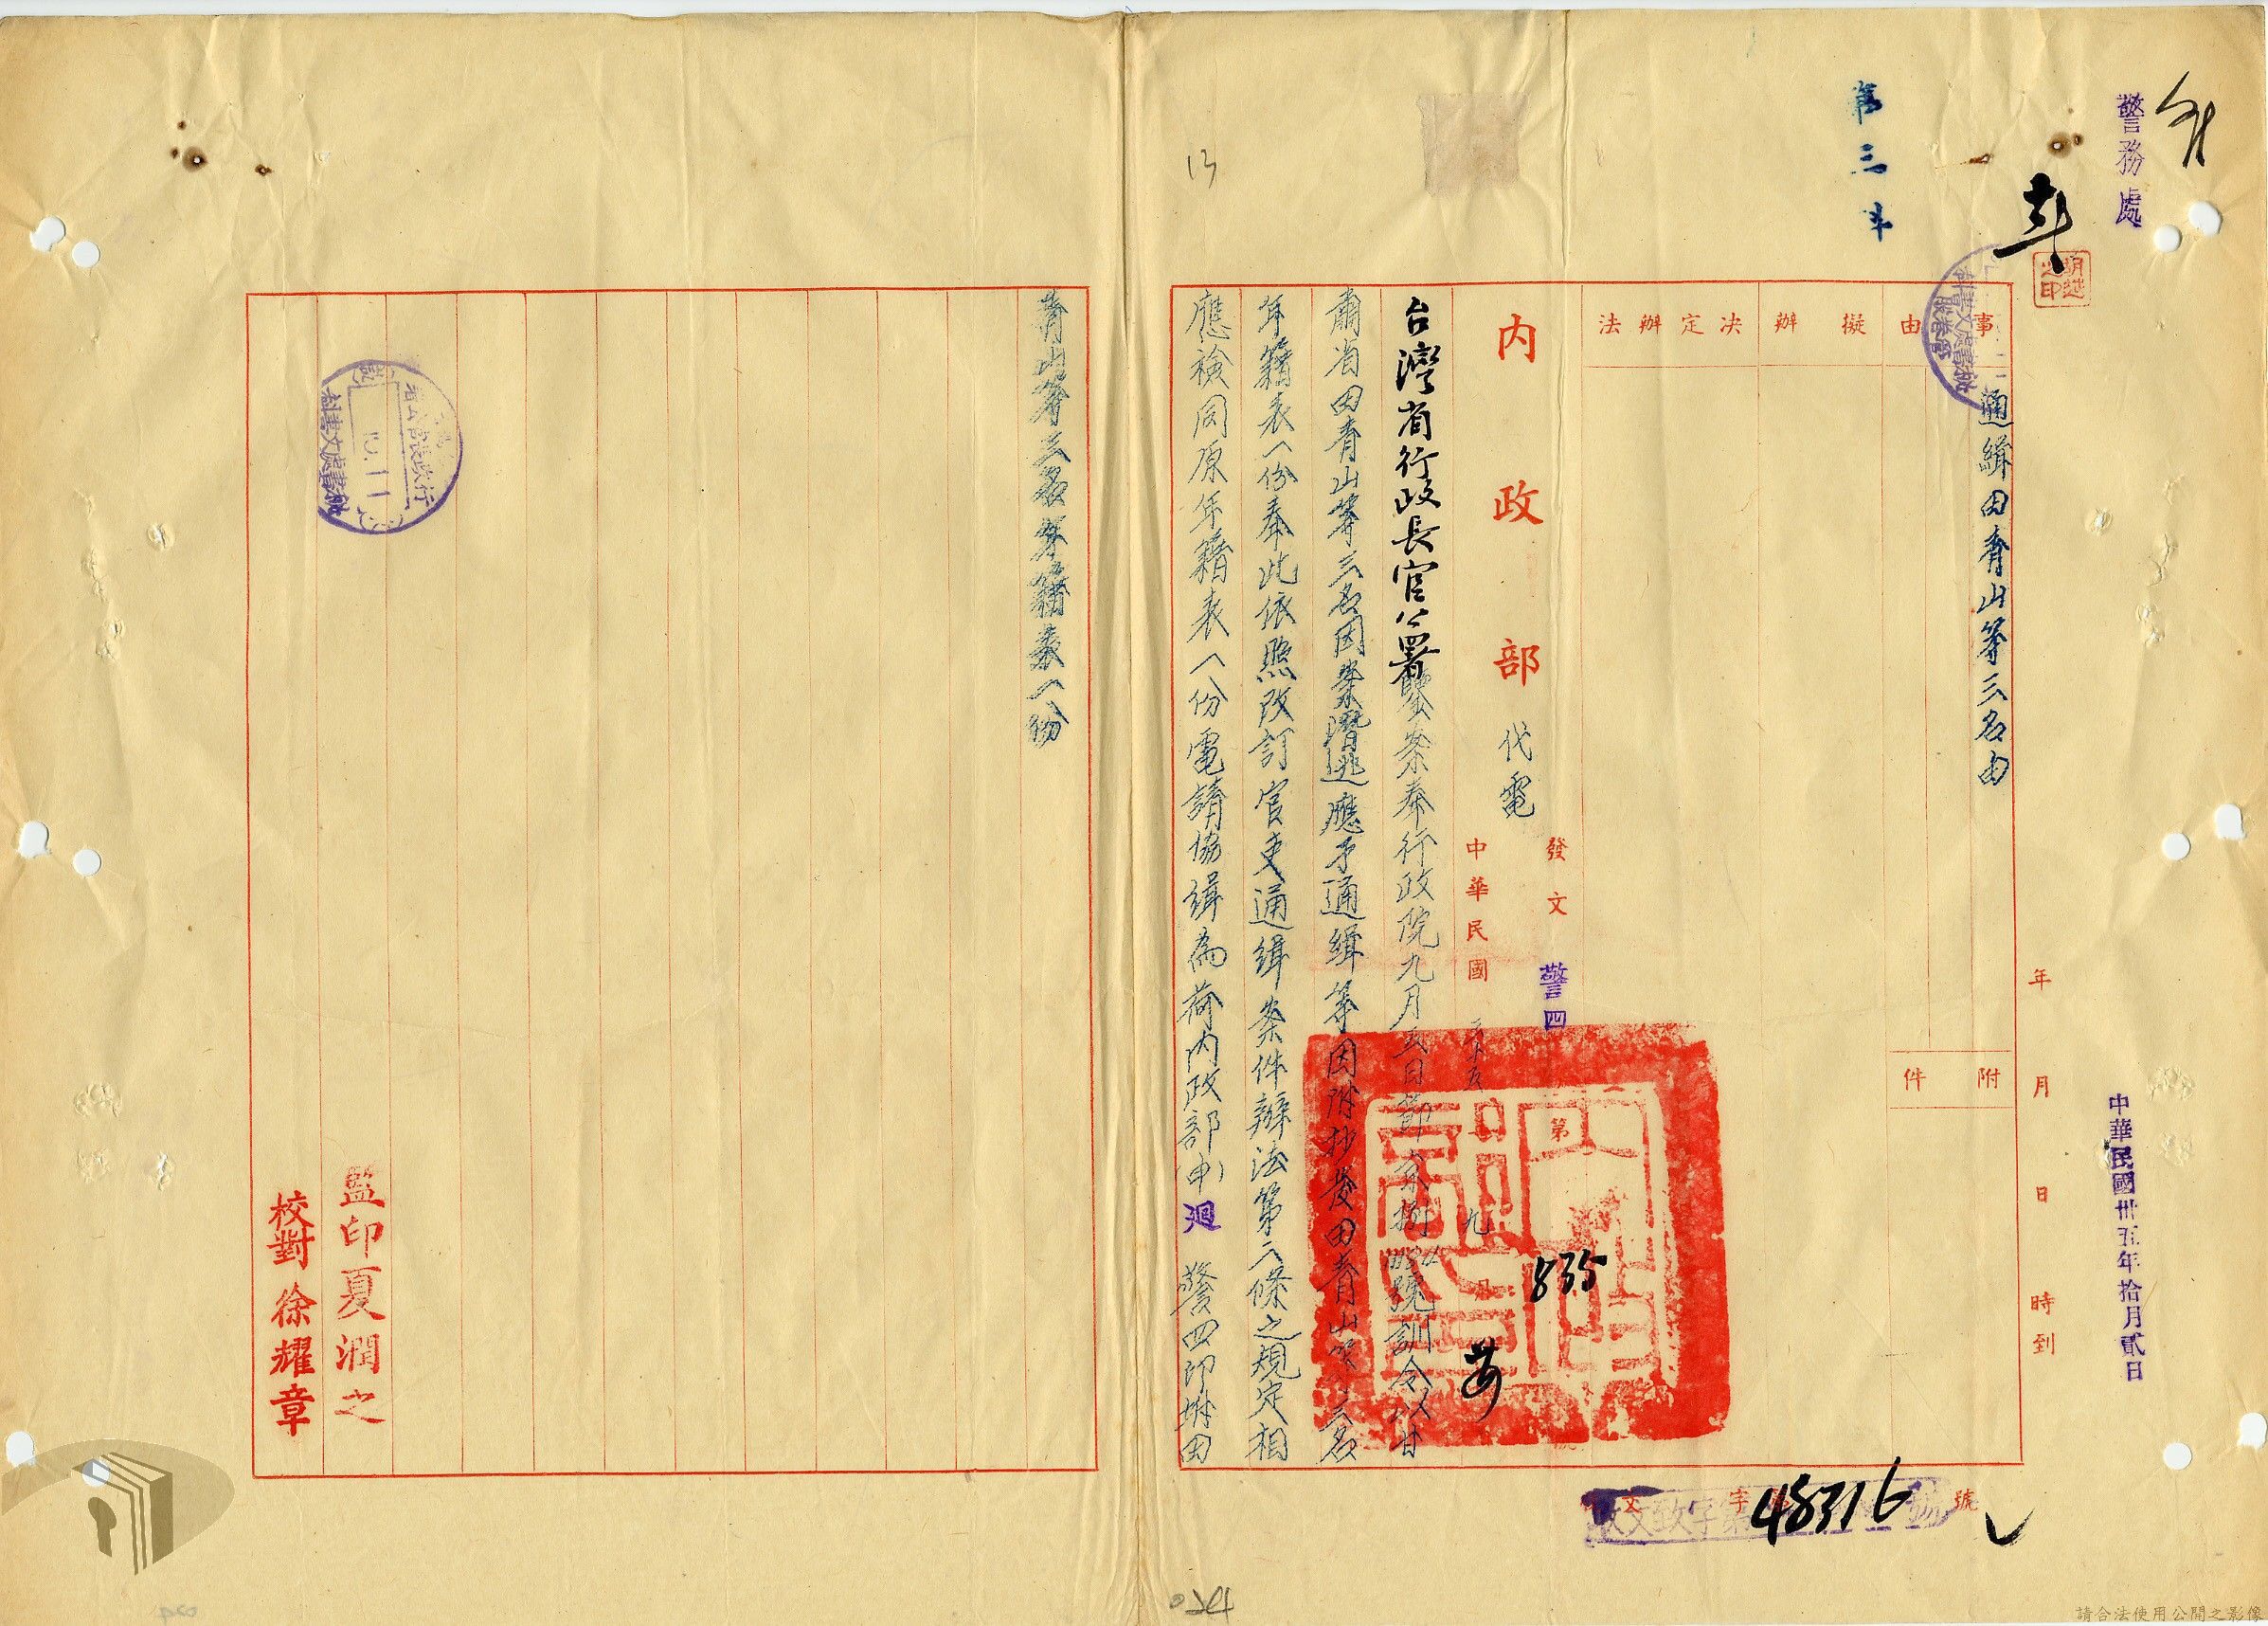 警務處
中華民國卅五年拾月貳日
第三
年月日時到
事由
通緝田青山等三名由
附件
擬辦
決定辦法
文字48316號
內政部代電
發文警四
第835
中華民國三十五年九月
台灣省行政長官公署鑒案奉行政院九月五日節京捌號訓令以甘
肅省田青山等三名因案潛逃應予通緝等因附抄發田青山等三名
年籍表一份奉此依照改訂官吏通緝案件辦法第二條之規定相
應檢同原年籍表一份電請協緝為荷內政部(申)迴警四印坿田
青山等三名年籍表一份
監印夏潤之
校對徐耀章
13
請合法使用公開之影像